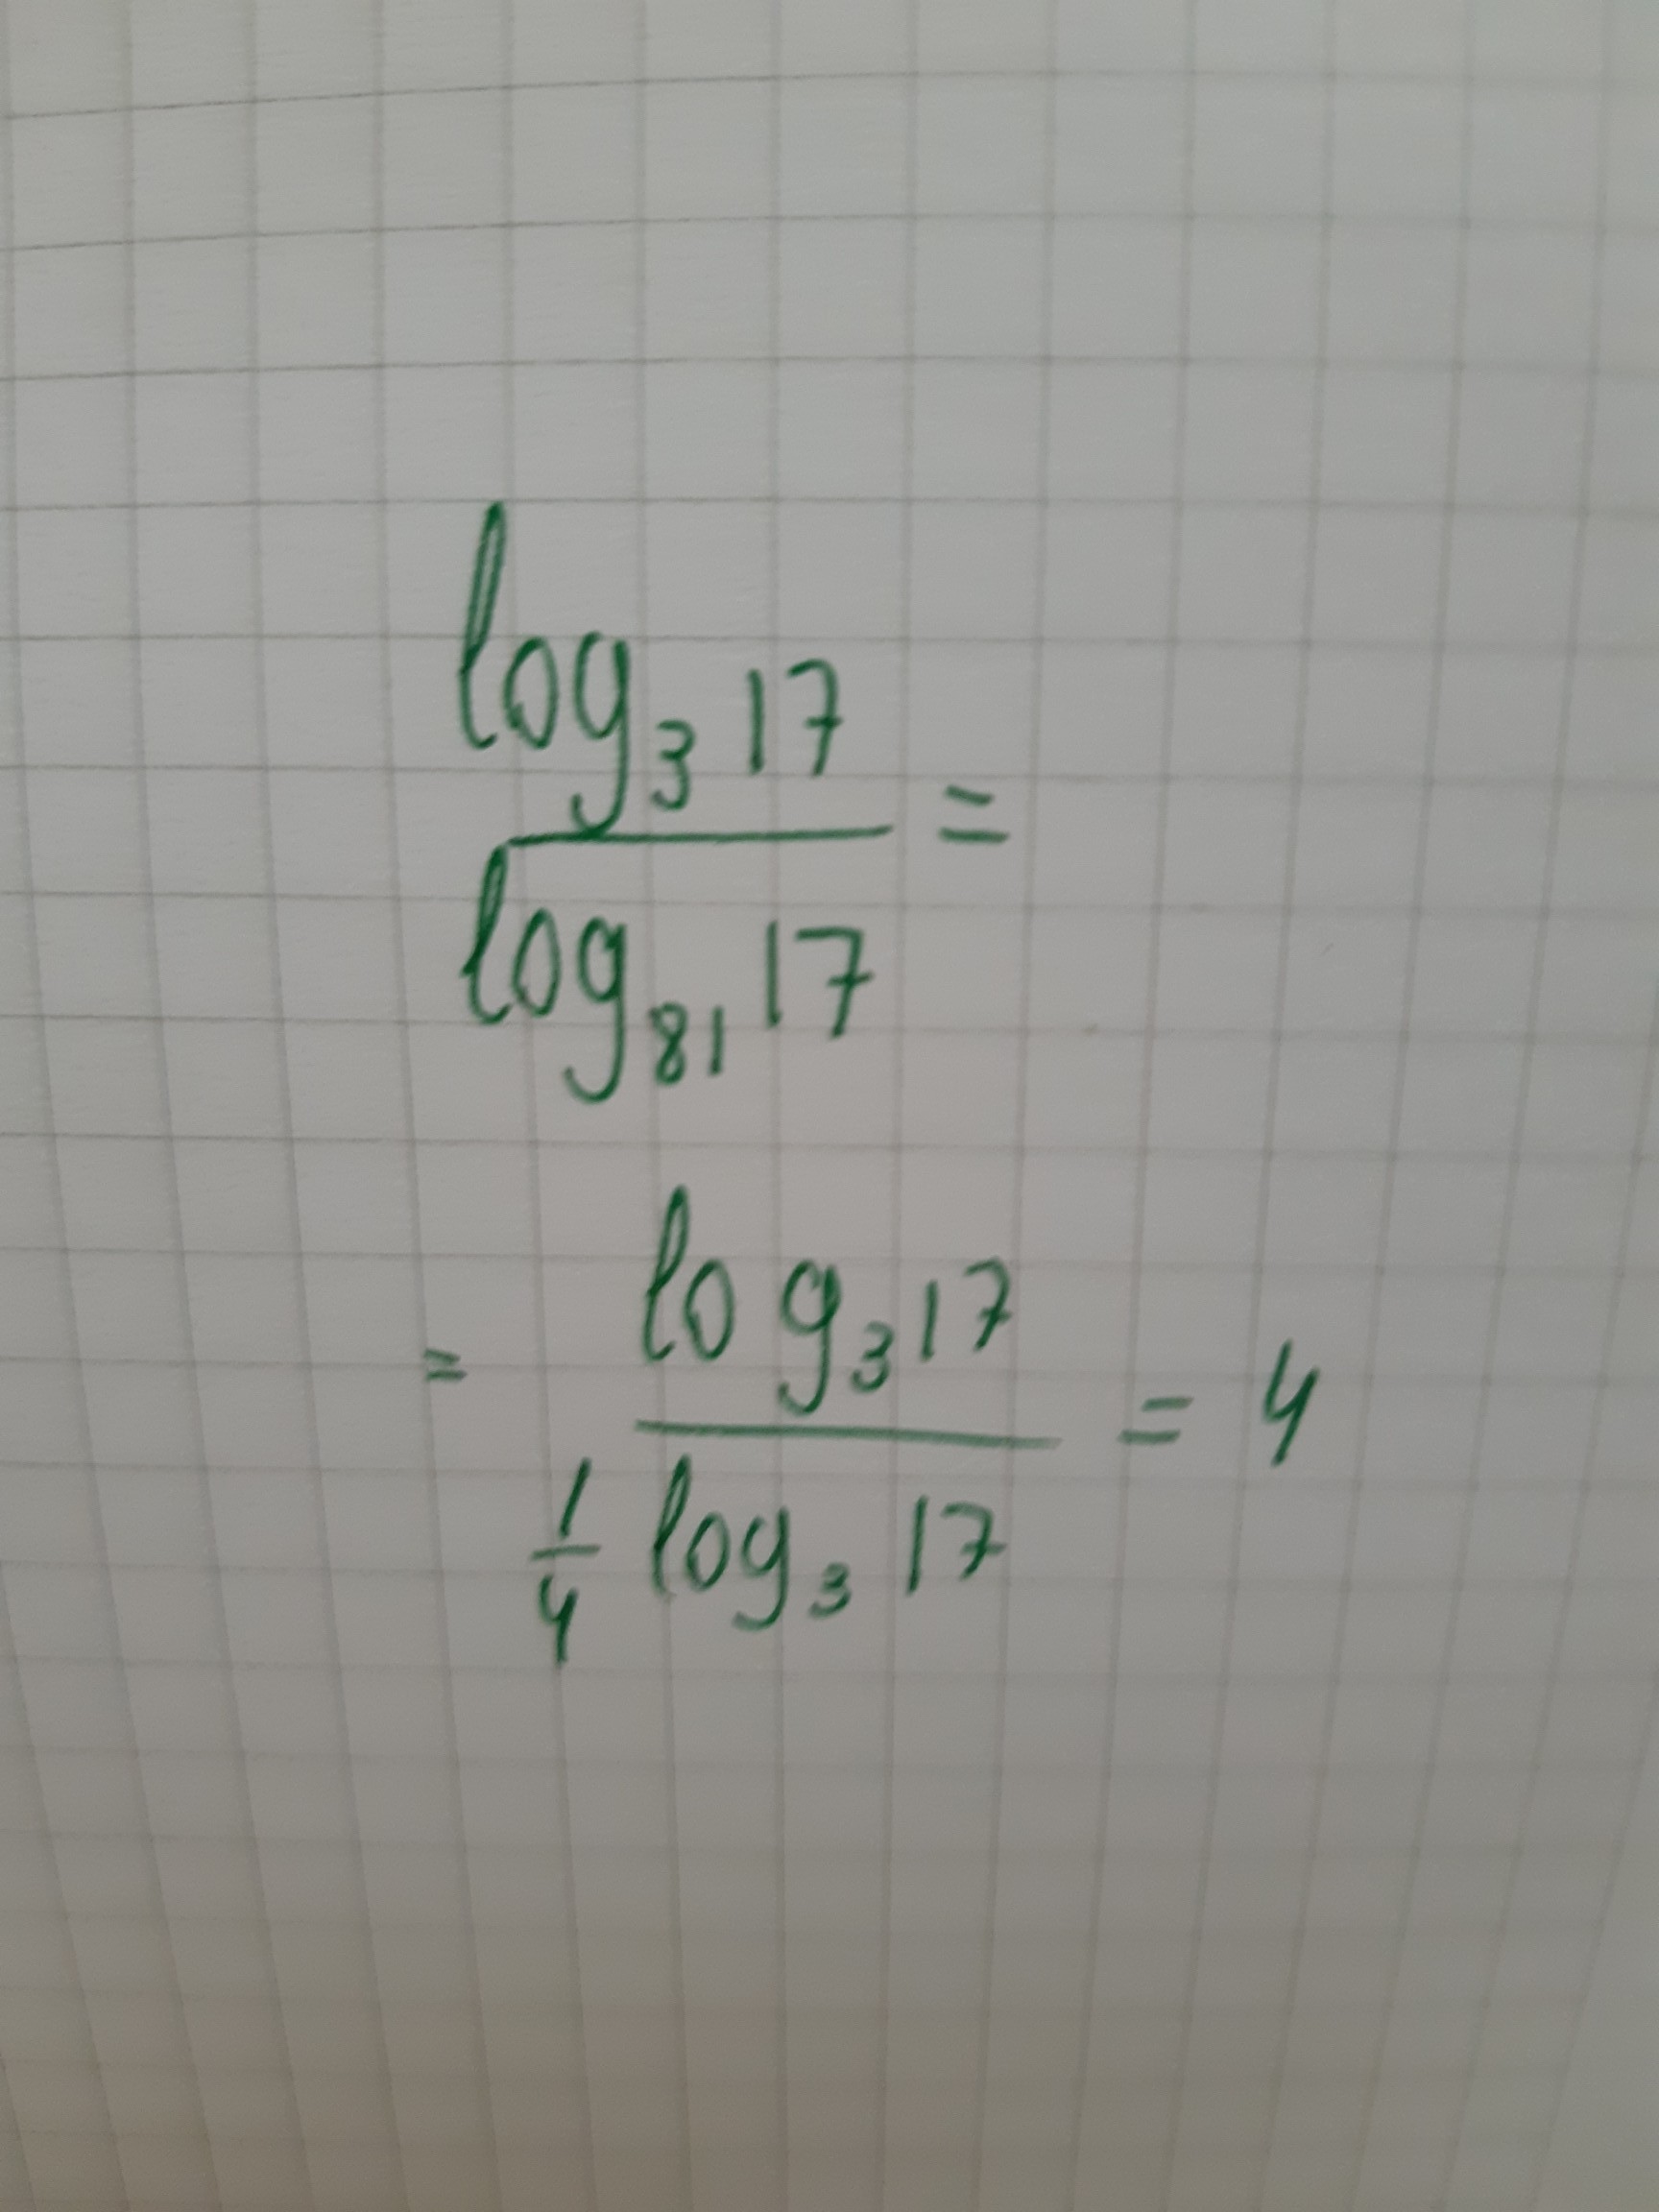 log₃ 17
——— =
log₈₁ 17
= log₃ 17
——— = 4
1/4 log₃ 17